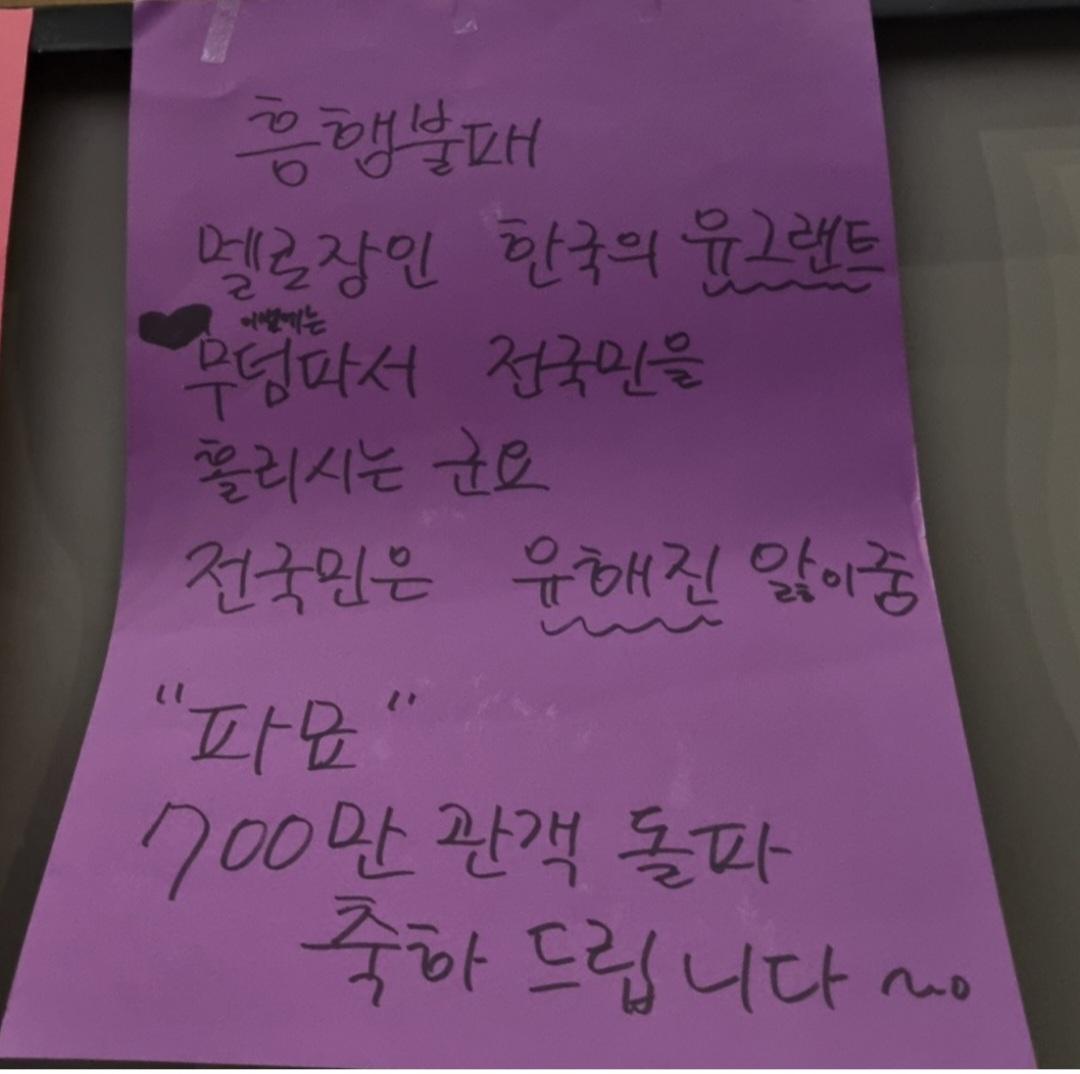 흥행불패
멜로장인 한국의 유그랜트
이번에는
무덤파서 전국민을
홀리시는 군요
전국민은 유해진 앓이중
"파묘"
700만 관객 돌파
축하 드립니다 ~o